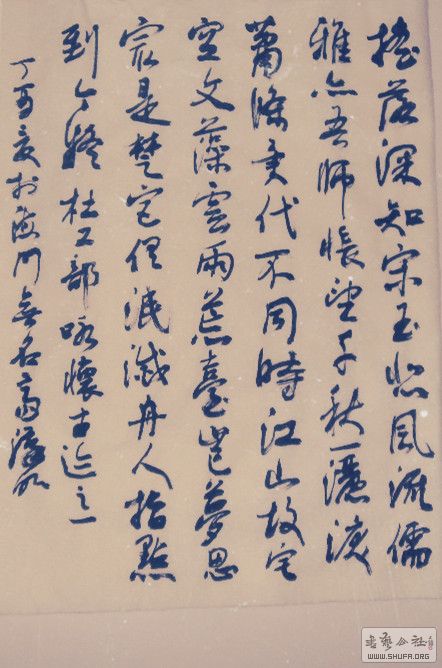 搖落深知宋玉悲風流儒
雅亦吾師悵望千秋一灑淚
蕭條異代不同時江山故宅
空文藻雲雨荒臺豈夢思
最是楚宮俱泯滅舟人指點
到今疑杜工部咏懷古迹之一
丁酉夏於海門無名齋
書藝公社
WWW.SHUFA.ORG